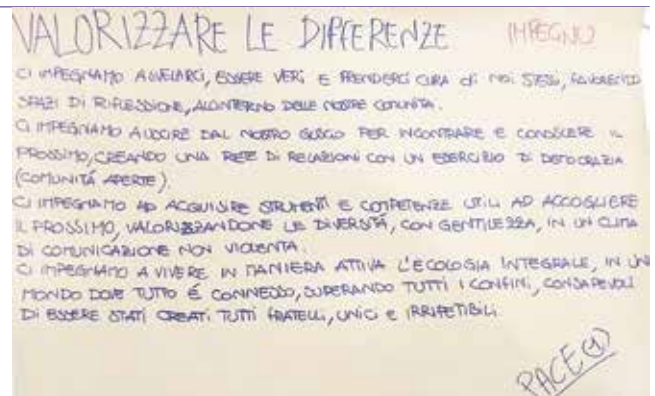 VALORIZZARE LE DIFFERENZE IMPEGNO
CI IMPEGNIAMO A SVELARCI, ESSERE VERI E PRENDERCI CURA di NOI STESSI, FAVORENDO
SPAZI DI RIFLESSIONE, ALL'INTERNO DELLE NOSTRE COMUNITÀ.
CI IMPEGNIAMO A USCIRE DAL NOSTRO GUSCIO PER INCONTRARE E CONOSCERE IL
PROSSIMO, CREANDO UNA RETE DI RELAZIONI CON UN ESERCIZIO DI DEMOCRAZIA
(COMUNITÁ APERTE).
CI IMPEGNIAMO AD ACQUISIRE STRUMENTI E COMPETENZE UTILI AD ACCOGLIERE
IL PROSSIMO, VALORIZZANDONE LE DIVERSITÁ, CON GENTILEZZA, IN UN CLIMA
DI COMUNICAZIONE NON VIOLENTA.
CI IMPEGNIAMO A VIVERE IN MANIERA ATTIVA L'ECOLOGIA INTEGRALE, IN UN
MONDO DOVE TUTTO É CONNESSO, SUPERANDO TUTTI I CONFINI, CONSAPEVOLI
DI ESSERE STATI CREATI TUTTI FRATELLI, UNICI E IRRIPETIBILI.
PACE (1)